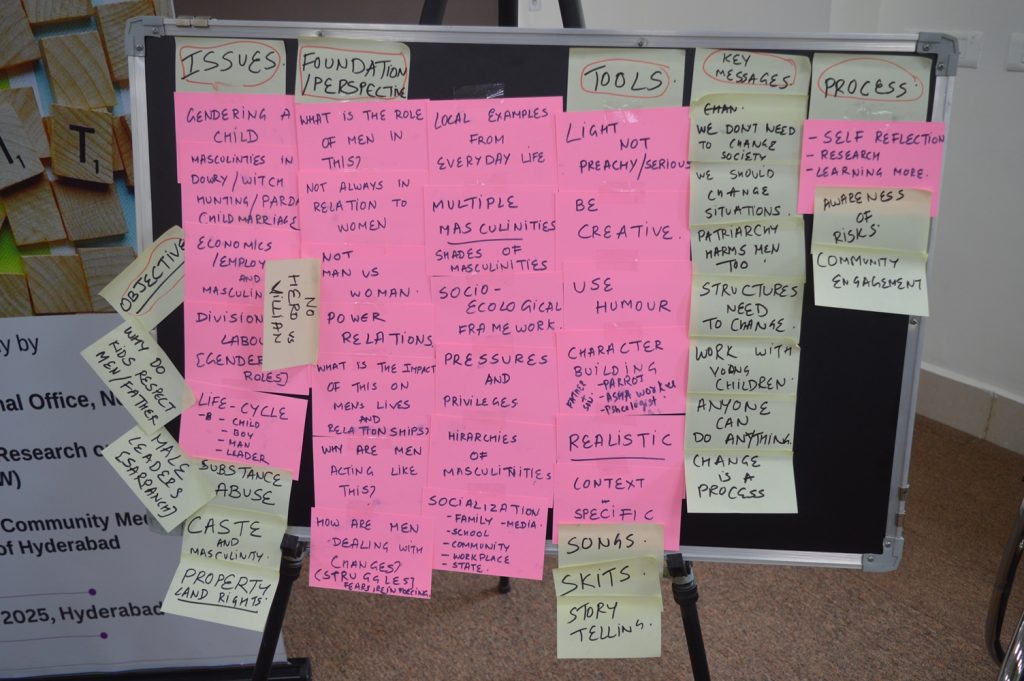 ISSUES.
GENDERING A
CHILD
MASCULINTIES IN
DOWRY/WITCH
HUNTING/PARDA
CHILD MARRIAGE
ECONOMICS
/EMPLOY
AND
MASCULIN
DIVISION
LABOU
[GENDER
ROLES]
LIFE-CYCLE
- B - CHILD
- BOY
- MAN
- LEADER
SUBSTANCE
ABUSE
CASTE
AND
MASCULINITY.
PROPERTY
LAND RIGHTS.
OBJECTIVE
WHY DO
KIDS RESPECT
MEN/FATHER
MALE
LEADERS
[SARPANCH]
NO
HERO VS
VILLIAN
FOUNDATION
/PERSPECTIVE
WHAT IS THE ROLE
OF MEN IN
THIS?
NOT ALWAYS IN
RELATION TO
WOMEN
NOT
MAN VS
WOMAN.
POWER
RELATIONS
WHAT IS THE IMPACT
OF THIS ON
MENS LIVES
AND
RELATIONSHIPS?
WHY ARE MEN
ACTING LIKE
THIS?
HOW ARE MEN
DEALING WITH
CHANGES?
[STRUGGLES]
FEARS, REINFORCING.
LOCAL EXAMPLES
FROM
EVERYDAY LIFE
MULTIPLE
MASCULINITIES
SHADES OF
MASCULINITIES
SOCIO-
ECOLOGICAL
FRAMEWORK.
PRESSURES
AND
PRIVILEGES
HIRARCHIES
OF
MASCULINITIES
SOCIALIZATION
- FAMILY - MEDIA.
- SCHOOL
- COMMUNITY
- WORKPLACE
- STATE.
TOOLS.
LIGHT
NOT
PREACHY/SERIOUS
BE
CREATIVE.
USE
HUMOUR
CHARACTER
BUILDING
FATHER
SON
- PARROT
- ASHA WORKER
- Pscologist.
REALISTIC
CONTEXT
-
SPECIFIC
SONGS.
SKITS.
STORY
TELLING.
KEY
MESSAGES.
CHAN.
WE DON'T NEED
TO CHANGE
SOCIETY
WE SHOULD
CHANGE
SITUATIONS.
PATRIARCHY
HARMS MEN
TOO!
STRUCTURES
NEED
TO CHANGE.
WORK WITH
YOUNG
CHILDREN.
ANYONE
CAN
DO ANYTHING.
CHANGE
IS A
PROCESS
PROCESS.
- SELF REFLECTION
- RESEARCH
- LEARNING MORE.
AWARENESS
OF
RISKS.
COMMUNITY
ENGAGEMENT
T1
y by
nal Office, N
Research o
W)
Community Me
of Hyderabad
2025, Hyderabad